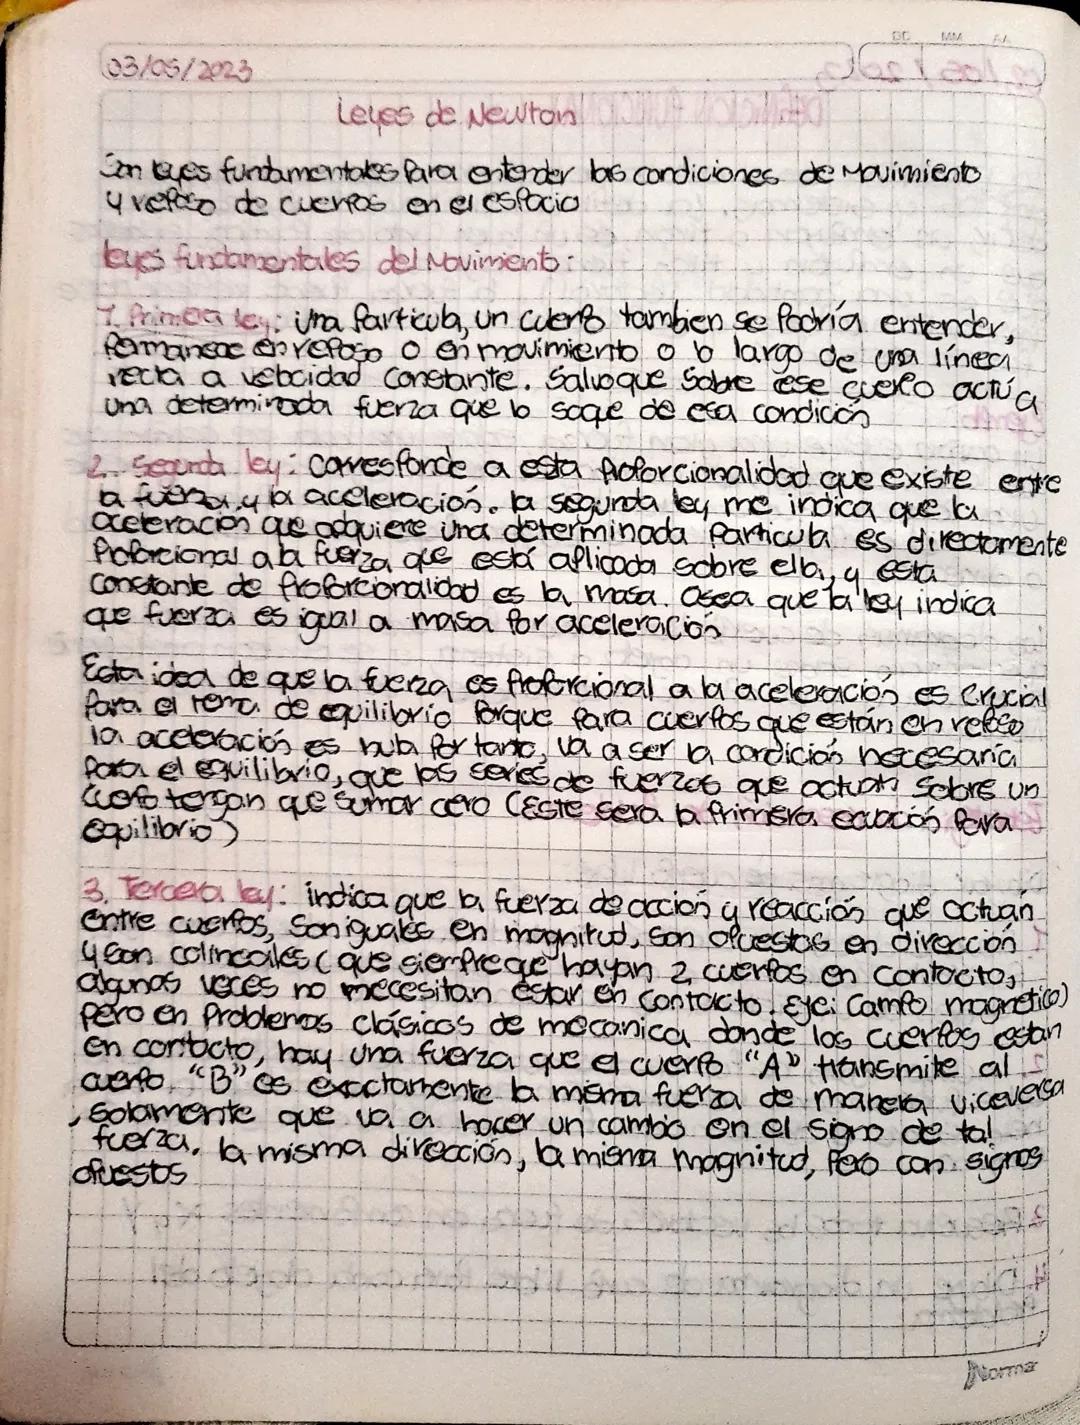 DD MM AA
03/05/2023
Leyes de Newton
Son leyes fundamentales para entender las condiciones de movimiento
y reposo de cuerpos en el espacio
leyes fundamentales del Movimiento:
1. Primera ley: Una particula, un cuerpo tambien se podría entender,
permanece en reposo o en movimiento o lo largo de una línea
recta a velocidad constante. Salvo que sobre ese cuerpo actúa
una determinada fuerza que lo saque de esa condición
2. Segunda ley: Corresponde a esta proporcionalidad que existe entre
la fuerza y la aceleración. la segunda ley me indica que la
aceleración que adquiere una determinada particula es directamente
proporcional a la fuerza que está aplicada sobre ella, y esta
constante de proporcionalidad es la masa. Osea que la ley indica
que fuerza es igual a masa por aceleración
Esta idea de que la fuerza es proporcional a la aceleración es crucial
para el tema de equilibrio porque para cuerpos que están en reposo
la aceleración es nula por tanto, va a ser la condición necesaria
para el equilibrio, que las series de fuerzas que actuan sobre un
cuerpo tengan que sumar cero (Este sera la primera ecuación para
equilibrio)
3. Tercera ley: indica que la fuerza de acción y reacción que actuan
entre cuerpos, son iguales en magnitud, son opuestas en dirección
y son colineales (que siempre que hayan 2 cuerpos en contacto,
algunas veces no necesitan estar en contacto. Eje: Campo magnetico)
pero en problemas clásicos de mecanica donde los cuerpos estan
en contacto, hay una fuerza que el cuerpo "A" transmite al
cuerpo "B" es exactamente la misma fuerza de manera viceversa
, solamente que va a hacer un cambio en el signo de tal
fuerza. la misma dirección, la misma magnitud, pero con signos
opuestos
Norma